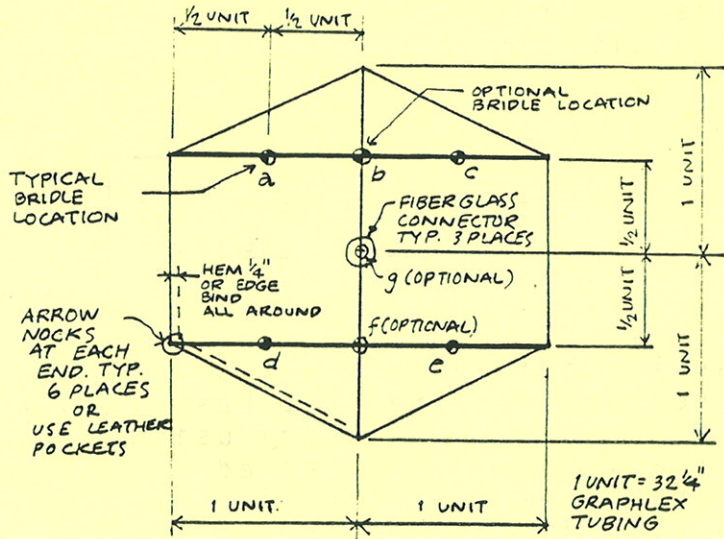 ½ UNIT
½ UNIT
OPTIONAL
BRIDLE LOCATION
a
b
c
TYPICAL
BRIDLE
LOCATION
1 UNIT
½ UNIT
FIBERGLASS
CONNECTOR
TYP. 3 PLACES
g (OPTIONAL)
HEM ¼"
OR EDGE
BIND
ALL AROUND
½ UNIT
1 UNIT
ARROW
NOCKS
AT EACH
END. TYP.
6 PLACES
OR
USE LEATHER
POCKETS
f (OPTIONAL)
d
e
1 UNIT.
1 UNIT
1 UNIT = 32 ¼"
GRAPHLEX
TUBING